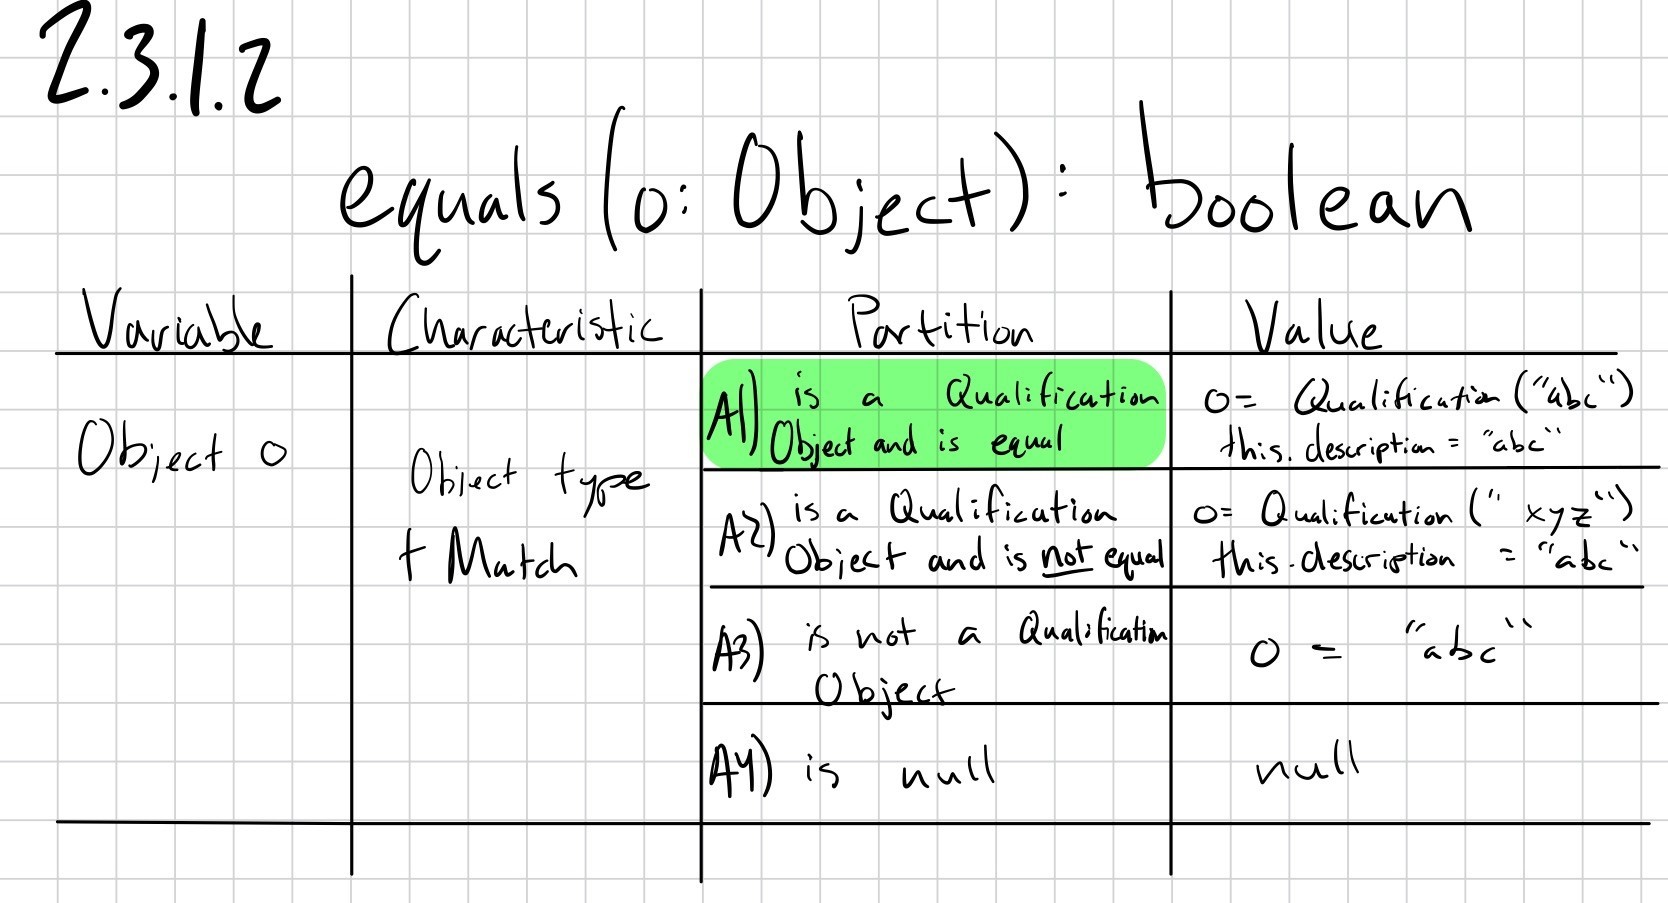 2.3.1.2
equals (o: Object): boolean
Variable Characteristic Partition Value
Object o
Object type
+ Match
A1) is a Qualification
Object and is equal
o= Qualification ("abc")
this.description = "abc"
A2) is a Qualification
Object and is not equal
o= Qualification ("xyz")
this.description = "abc"
A3) is not a Qualification
Object
o = "abc"
A4) is null
null